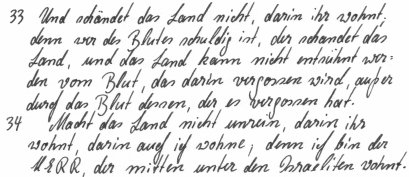 33 Und schändet das Land nicht, darin ihr wohnt;
denn wer des Blutes schuldig ist, der schändet das
Land, und das Land kann nicht entsühnt wer-
den vom Blut, das darin vergossen wird, außer
durch das Blut dessen, der es vergossen hat.
34 Macht das Land nicht unrein, darin ihr
wohnt, darin auch ich wohne; denn ich bin der
HERR, der mitten unter den Israeliten wohnt.